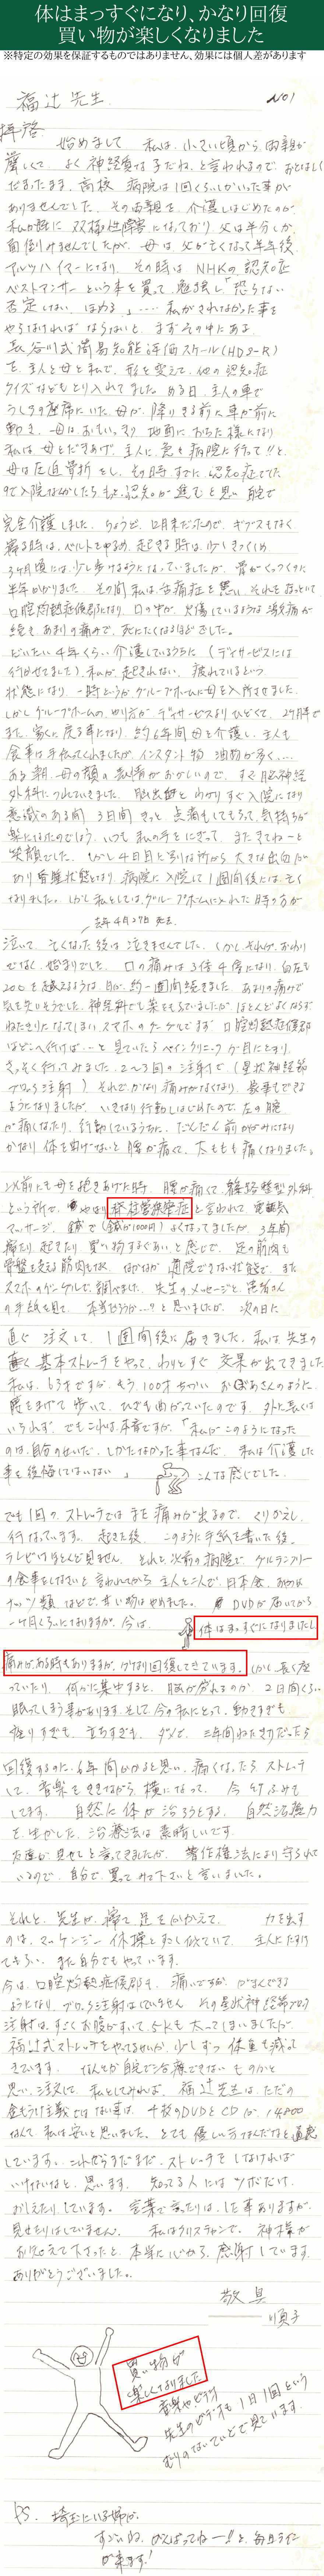 体はまっすぐになり、かなり回復
買い物が楽しくなりました
※特定の効果を保証するものではありません、効果には個人差があります
福辻先生
No1
拝啓
始めまして 私は、小さい頃から、両親が
厳しくて、よく神経質な子だね、と言われるので、おとなしく
ありませんでした。その両親を、介護しはじめたのが
アルツハイマーになり、その時は、NHKの認知症
ベストアンサーという本を買って、勉強し「怒らない
否定しない、ほめる」
やらなければならないと、まずその中にある
長谷川式簡易知能評価スケール(HDS-R)
を、主人と母と私で、形を変えて、他の認知症
クイズなどもとり入れてました。ある日、主人の車で
私は母をだきあげ、主人に、急き病院に行って!!と、
母は圧迫骨折をし、その時すでに、認知症でした
完全介護しました。ちょうど、12月末だったので、ギブスもなく
半年かかりました。その間私は、舌痛症を患い、それをほっといて
口腔灼熱症候群になり、口の中が、火傷しているような激痛が
続き、あまりの痛みで、死にたくなるほどでした。
だいたい4年くらい介護しているうちに(デイサービスには
行かせてました)私が起きれない、疲れているという
状態になり、一時どうかグループホームに母を入所させました
食事は手伝ってくれましたが、インスタント物、油物が多く、…
ある朝、母の顔の表情がおかしいので、すぐ脳神経
外科につれていきました。脳出血とわかりすぐ入院になり
笑顔でした。しかし4日目に別な所から、大きな出血が
あり昏睡状態となり、病院に入院して1週間後には、亡く
なりました。しかし私としては、グループホームに入れた時の方が
去年4月27日死去
泣いて、亡くなった後は泣きませんでした。しかしそれが、おわり
ではなく、始まりでした。口の痛みは3倍4倍になり、血圧も
200を越えるような日が、約一週間続きました。あまりの痛みで
気を失いそうでした。神経科でも薬をもらっていましたが、ほとんどよくならず
ねたきりになってしまい、スマホのグーグルでまず、口腔灼熱症候群
はどこへ行けば…と見ていたらペインクリニックが目にとまり、
さっそく行ってみました。2〜3回の注射で(星状神経節
ブロック注射)それでかなり痛みがなくなり、食事もできる
ようになりましたが、いきなり行動しはじめたので、左の腕
が痛くなり、行動しているうちに、だんだん前かがみになり
かなり体を曲げないと腰が痛くて、太ももも痛くなりました。
以前にも母を抱きあげた時、腰が痛くて、
脊柱管狭窄症と言われて 電気
マッサージ、鍼で(鍼が1000円)よくなってましたが、3年間
寝たり起きたり、買い物するぐらいと感じで、足の筋肉も
骨盤を支える筋肉もなく、なかなか通院できない状態で、また
スマホのグーグルで調べました。先生のメッセージと、患者さん
の手紙を見て、本当だろうか…?と思いましたが、次の日に
直ぐ注文して、1週間後に届きました。私は先生の
基本ストレッチをやって、わりとすぐ効果が出てきました
私は、63才ですが、もう、100才ちかいおばあさんのように
腰をまげて歩いて、ひざも曲がっていたのです。外に長くは
いられず、でもこれは本音ですが、「私がこのようになった
のは、自分のせいだ、しかたなかった事なんだ、私は介護した
事を後悔してはいない」
こんな感じでした。
でも1回のストレッチではまだ痛みが出るので、くりかえし
行なっています。起きた後、このように手紙を書いた後、
テレビはほとんど見ません。それと以前の病院で、グルテンフリー
の食事をしなさいと言われてから主人と二人で、日本食、
ナッツ類などで、甘い物はやめました。DVDが届いてから
一ヶ月くらいになりますが、今は、体はまっすぐになりましたし、
痛みがある時もありますが、かなり回復してきています。しかし長く座
っていたり、何かに集中すると、脳が疲れるのか、2日間くらい
眠ってしまう事があります。そして今の私にとって、動きすぎも
座りすぎも、立ちすぎも、ダメで、三年間ねたきりだったら
回復するのに、6年間かかると思い、痛くなったらストレッチ
して、音楽をききながら、横になって、今、竹ふみも
してます。自然に体が治ろうとする、自然治癒力
を、生かした、治療法は素晴しいです。
友達が見せてと言ってきましたが、著作権法により守られて
いるので、自分で買ってみて下さいと言いました。
それと、先生が、寝て足を向かえて、力を出す
のは、マッケンジー体操と少し似ていて、主人にたすけて
もらい、また自分でもやっています。
今は、口腔灼熱症候群も、痛いですが、がまんできる
ようになり、ブロック注射はしていません。その星状神経節ブロック
注射は、すごくお腹がすいて、5kも太ってしまいましたが
福辻式ストレッチをやってるせいか、少しずつ体重も減って
きています。なんとか自宅で治療できないものかと
思い、注文して、私としてみれば、福辻先生は、ただの
金もうけ主義ではない事は、4枚のDVDとCDが、14,800
なんて、私は安いと思いました。とても優しい方なんだなと感じ
しています。これからまだまだ、ストレッチをしなければ
いけないなと、思います。知ってる人にはツボだけ、
おしえたりしています。言葉で言ったりは、した事ありますが、
見せたりはしていません。私はクリスチャンで、神様が
お与えて下さったと、本当に心から、感謝しています。
ありがとうございました。
敬具
順子
買い物が
楽しくなりました
音楽やビデオ
先生のビデオも1日1回という
むりのないていどで見ています。
P.S. 埼玉にいる姉が、
すごいね、がんばってねー!!と、毎日ライン
が来ます!